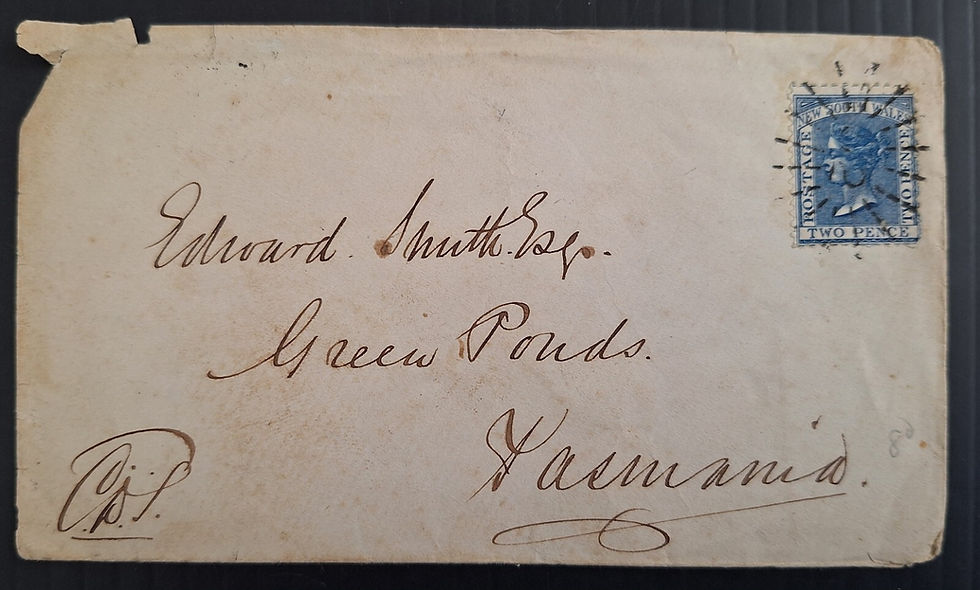 NEW SOUTH WALES
POSTAGE
TWO PENCE
TWO PENCE
Edward Smith Esq.
Green Ponds.
Tasmania.